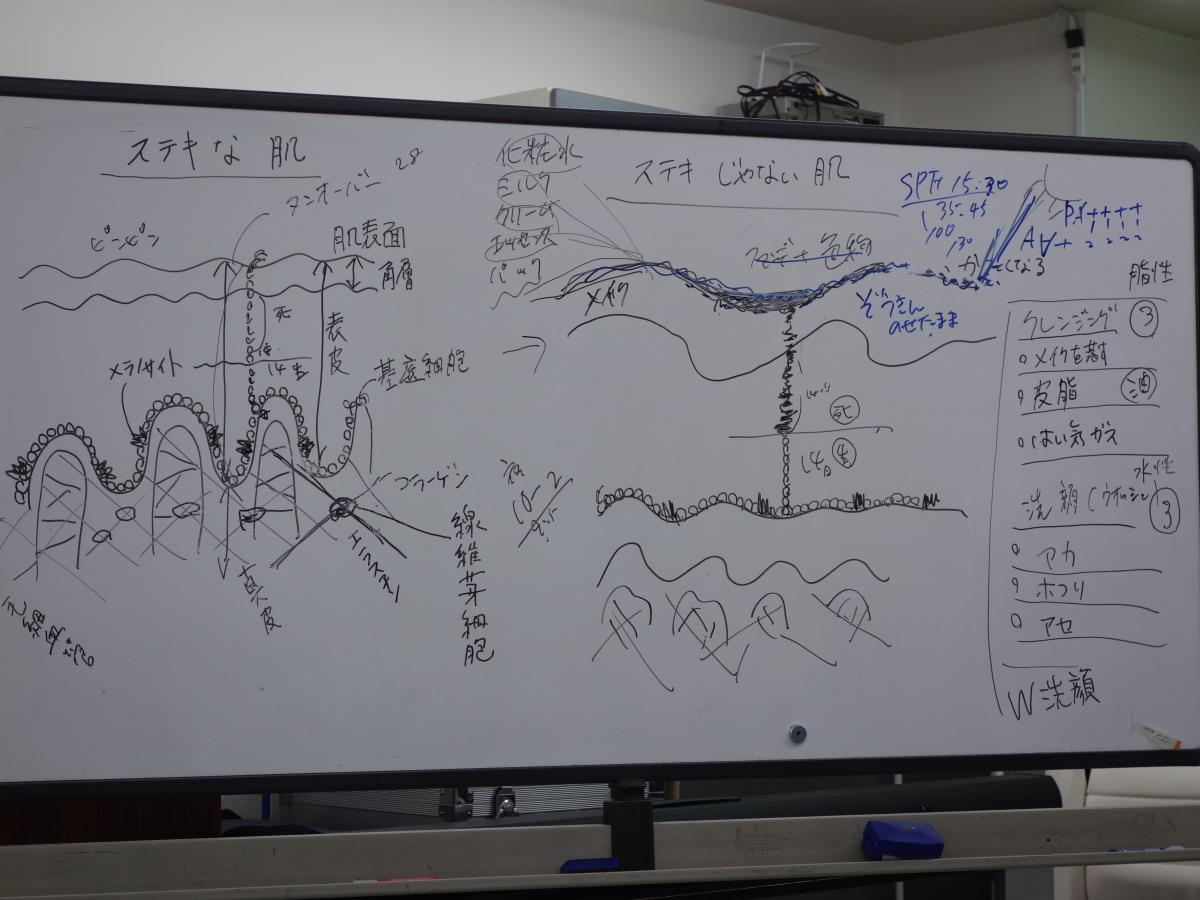 ステキな 肌
タンオーバー 28
ピンピン
肌表面
角層
死
表皮
14 生
メラノサイト
基底細胞
コラーゲン
エラスチン
真皮
線維芽細胞
化粧水
ミルク
クリーム
パック
ステキ じゃない 肌
メイク
ぞうきん
のせたまま
死
14日 生
SPF 15.30
35.45
100
130
PA++++
脂性
クレンジング ③
○メイクを落す
○皮脂 油
○はい気ガス
水性
洗顔 ③
○アカ
○ホコリ
○アセ
W洗顔